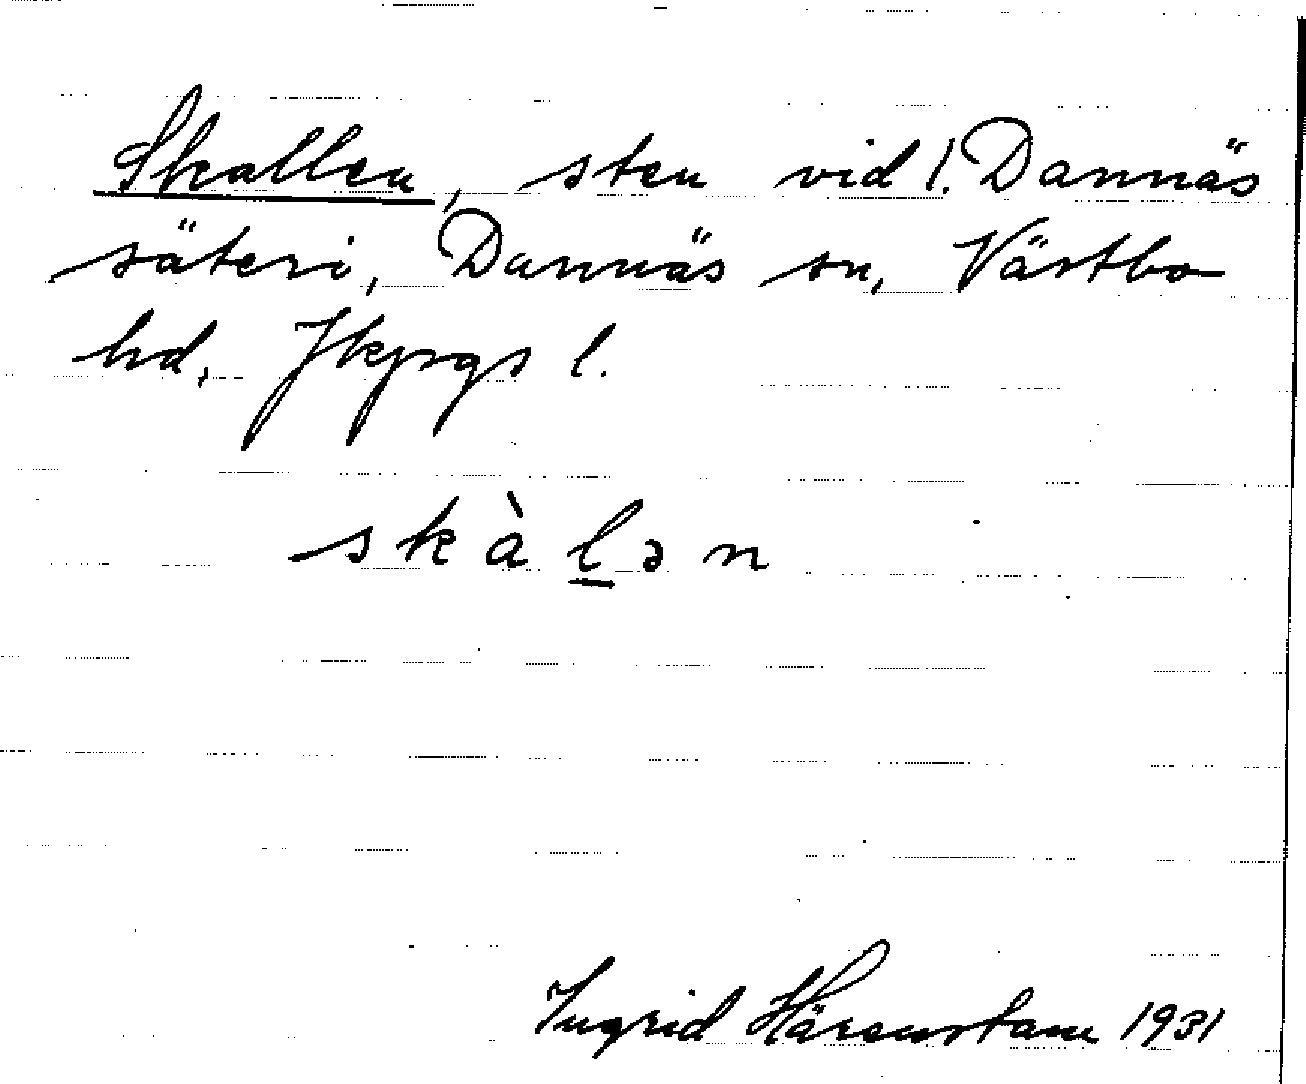 Skallen, sten vid l. Dannäs
säteri, Dannäs sn, Västbo
hd, Jkpgs l.
skàlən
Ingrid Härenstam 1931